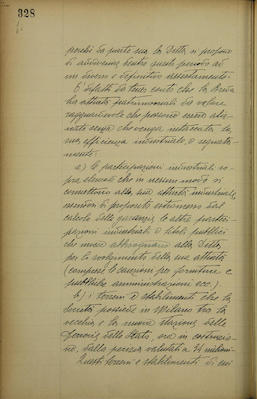 328
perchè da parte sua la Ditta si propone
di addivenire, dentro questo periodo ad
un diverso e definitivo assestamento.
È difatti da tener conto che la Breda
ha attività patrimoniali di valore
ragguardevole che possono essere
senza che venga intaccata la
sua efficienza industriale, e segnata-
mente:
a) le partecipazioni industriali so-
pra elencate che in nessun modo si
connettono alla sua attività industriale,
essendosi di proposito estromesse dal
calcolo della garanzia le altre parteci-
pazioni industriali e titoli pubblici
che invece abbisognano alla Ditta,
per lo svolgimento della sua attività
(compresi le cauzioni per forniture a
pubbliche amministrazioni ecc.).
b) i terreni e stabilimenti che la
Società possiede in Milano tra la
vecchia e la nuova stazione delle
Ferrovie dello Stato, ora in costruzio-
ne, dalla perizia valutati a milioni.
Questi terreni e stabilimenti di cui